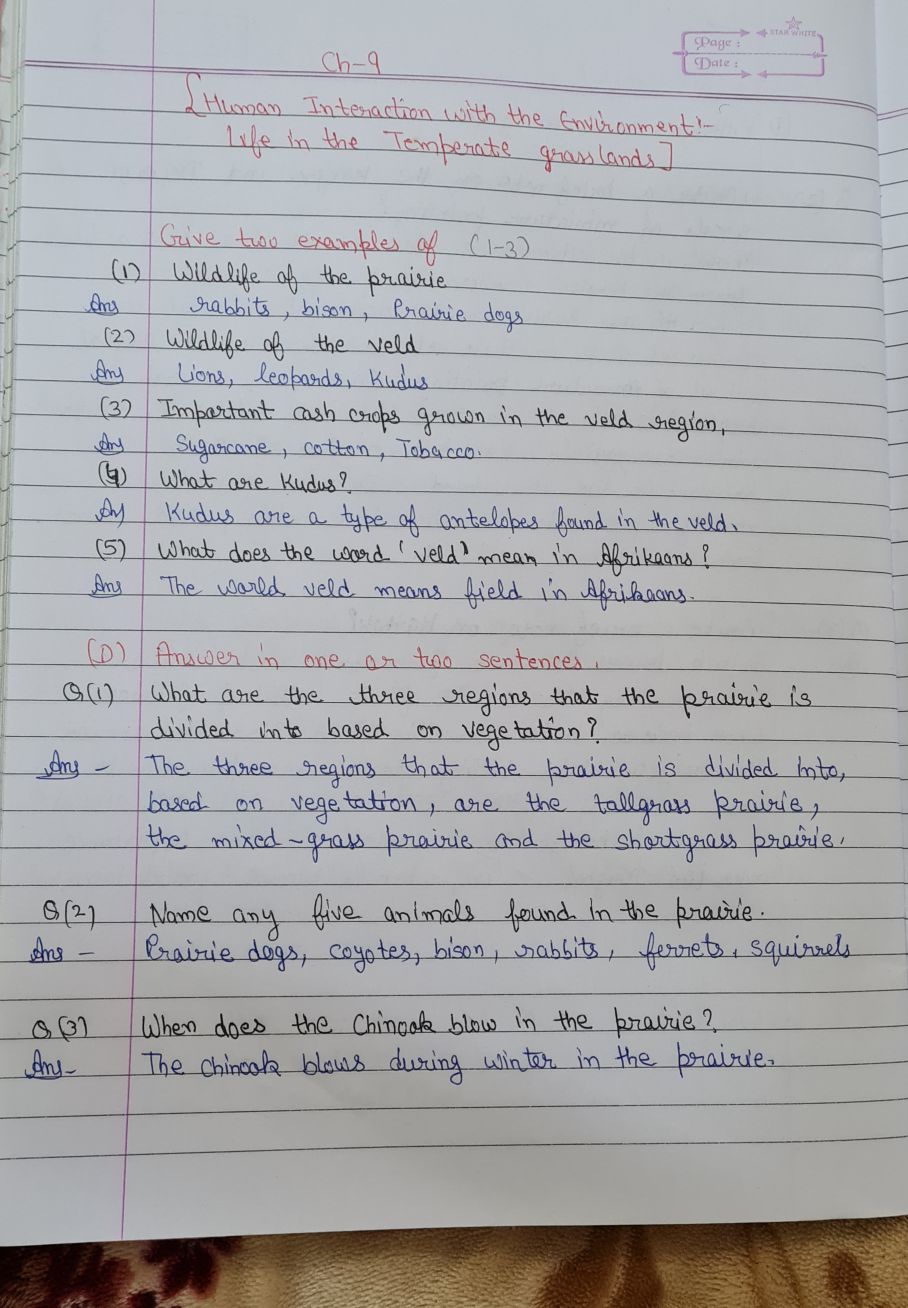 STAR WHITE
Page :
Date :
Ch-9
[Human Interaction with the Environment:-
Life in the Temperate grasslands]
Give two examples of (1-3)
(1) Wildlife of the prairie
Ans rabbits, bison, Prairie dogs
(2) Wildlife of the veld
Ans Lions, leopards, Kudus
(3) Important cash crops grown in the veld region.
Ans Sugarcane, cotton, Tobacco.
(4) What are Kudus?
Ans Kudus are a type of antelopes found in the veld.
(5) What does the word 'veld' mean in Afrikaans?
Ans The world veld means field in Afrikaans.
(D) Answer in one or two sentences.
Q(1) What are the three regions that the prairie is
divided into based on vegetation?
Ans - The three regions that the prairie is divided into,
based on vegetation, are the tallgrass prairie,
the mixed-grass prairie and the shortgrass prairie.
Q(2) Name any five animals found in the prairie.
Ans - Prairie dogs, coyotes, bison, rabbits, ferrets, squirrels
Q(3) When does the Chinook blow in the prairie?
Ans- The chinook blows during winter in the prairie.